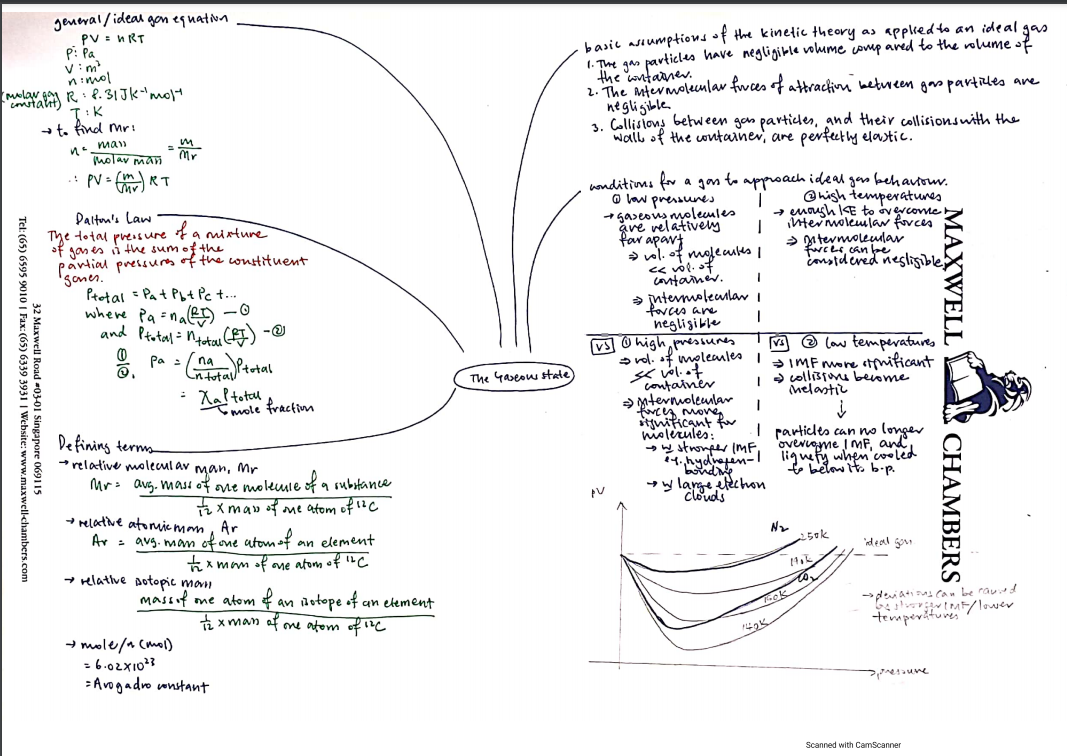 general/ideal gas equation
PV = nRT
P: Pa
V: m³
n: mol
(molar gas constant) R: 8.31 JK⁻¹mol⁻¹
T: K
→ to find Mr:
n = mass / molar mass = m / Mr
∴ PV = (m/Mr) RT
Dalton's Law
The total pressure of a mixture
of gases is the sum of the
partial pressures of the constituent
gases.
Ptotal = Pa + Pb + Pc + ...
where Pa = na(RT/V) — ①
and Ptotal = ntotal(RT/V) — ②
①/②, Pa = (na/ntotal)Ptotal
= χaPtotal
mole fraction
Defining terms
→ relative molecular mass, Mr
Mr = avg. mass of one molecule of a substance
1/12 × mass of one atom of ¹²C
→ relative atomic mass, Ar
Ar = avg. mass of one atom of an element
1/12 × mass of one atom of ¹²C
→ relative isotopic mass
mass of one atom of an isotope of an element
1/12 × mass of one atom of ¹²C
→ mole/n (mol)
= 6.02×10²³
= Avogadro constant
The Gaseous state
basic assumptions of the kinetic theory as applied to an ideal gas
1. The gas particles have negligible volume compared to the volume of
the container.
2. The intermolecular forces of attraction between gas particles are
negligible
3. Collisions between gas particles, and their collisions with the
walls of the container, are perfectly elastic.
conditions for a gas to approach ideal gas behaviour.
① low pressures
→ gaseous molecules
are relatively
far apart
⇒ vol. of molecules
<< vol. of
container.
⇒ intermolecular
forces are
negligible
② high temperatures
→ enough KE to overcome
intermolecular forces
⇒ intermolecular
forces can be
considered negligible
VS ① high pressures
⇒ vol. of molecules
<< vol. of
container
⇒ intermolecular
forces more
significant for
molecules:
→ w stronger IMF
e.g. hydrogen-
bonding
→ w large electron
clouds
VS ② low temperatures
⇒ IMF more significant
⇒ collisions become
inelastic
↓
particles can no longer
overcome IMF, and
liquefy when cooled
to below its b.p.
PV
N₂
250K
ideal gas
CO₂
140K
pressure
→ deviations can be caused
by stronger IMF/lower
temperatures
MAXWELL CHAMBERS
32 Maxwell Road #03-01 Singapore 069115
Tel: (65) 6595 9010 | Fax: (65) 6339 3931 | Website: www.maxwell-chambers.com
Scanned with CamScanner